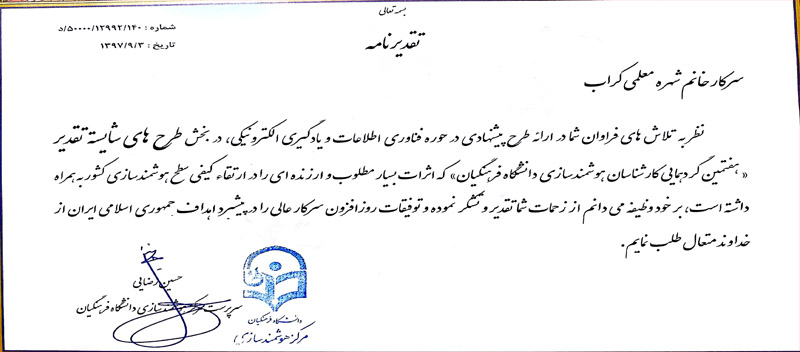 بسمه تعالی
شماره : ۵۰۰۰۰/۱۲۹۹۲/۱۴۰/د
تاریخ : ۱۳۹۷/۹/۳
تقدیرنامه
سرکار خانم شهره معلمی کراب
نظر به تلاش های فراوان شما در ارائه طرح پیشنهادی در حوزه فناوری اطلاعات و یادگیری الکترونیکی، در بخش طرح های شایسته تقدیر
«هفتمین گردهمایی کارشناسان هوشمندسازی دانشگاه فرهنگیان» که اثرات بسیار مطلوب و ارزنده ای را در ارتقاء کیفی سطح هوشمندسازی کشور به همراه
داشته است، بر خود وظیفه می دانم از زحمات شما تقدیر و تشکر نموده و توفیقات روزافزون سرکار عالی را در پیشبرد اهداف جمهوری اسلامی ایران از
خداوند متعال طلب نمایم.
حسین رضایی
سرپرست مرکز هوشمندسازی دانشگاه فرهنگیان
دانشگاه فرهنگیان
مرکز هوشمندسازی